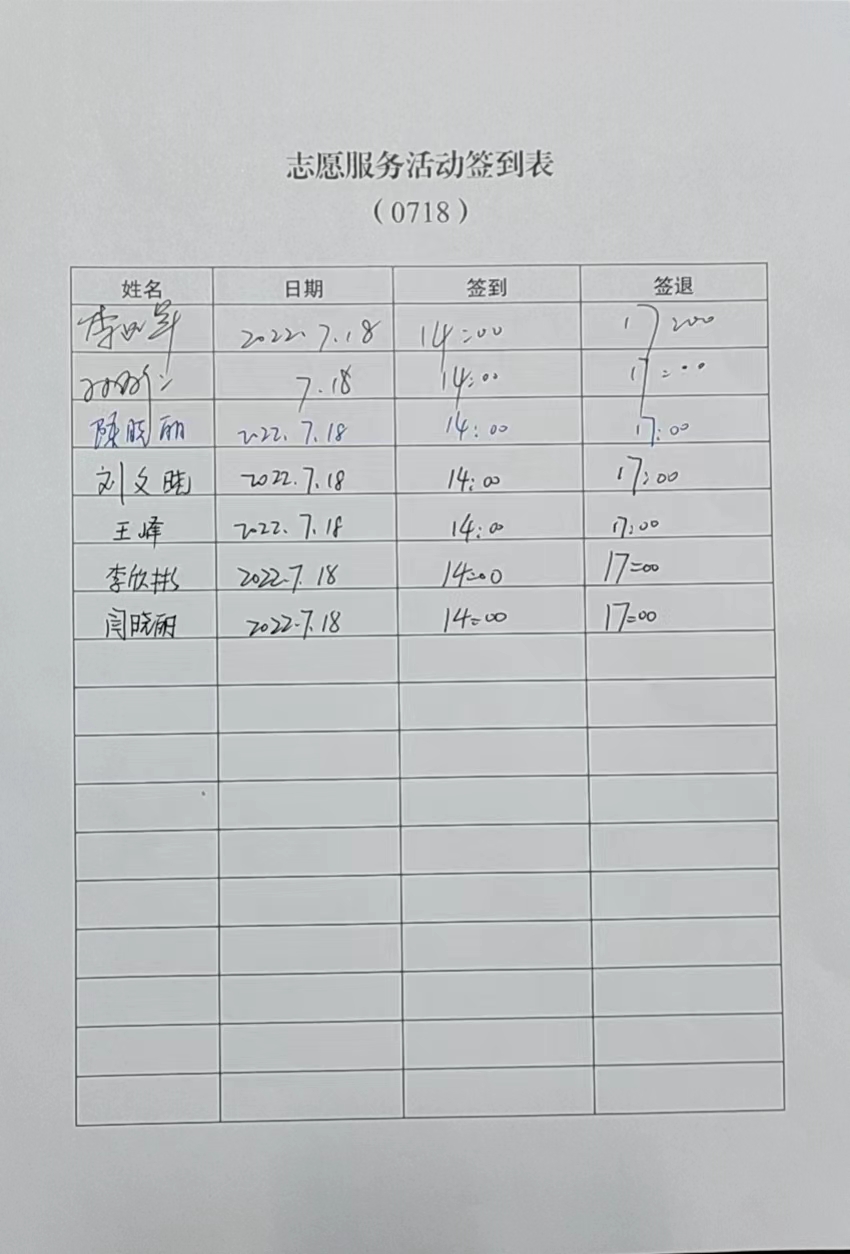 志愿服务活动签到表
（0718）
姓名 日期 签到 签退
2022.7.18 14:00 17:00
7.18 14:00 17:00
陈晓丽 2022.7.18 14:00 17:00
刘文 2022.7.18 14:00 17:00
王峰 2022.7.18 14:00 17:00
李欣彬 2022.7.18 14:00 17:00
闫晓丽 2022.7.18 14:00 17:00